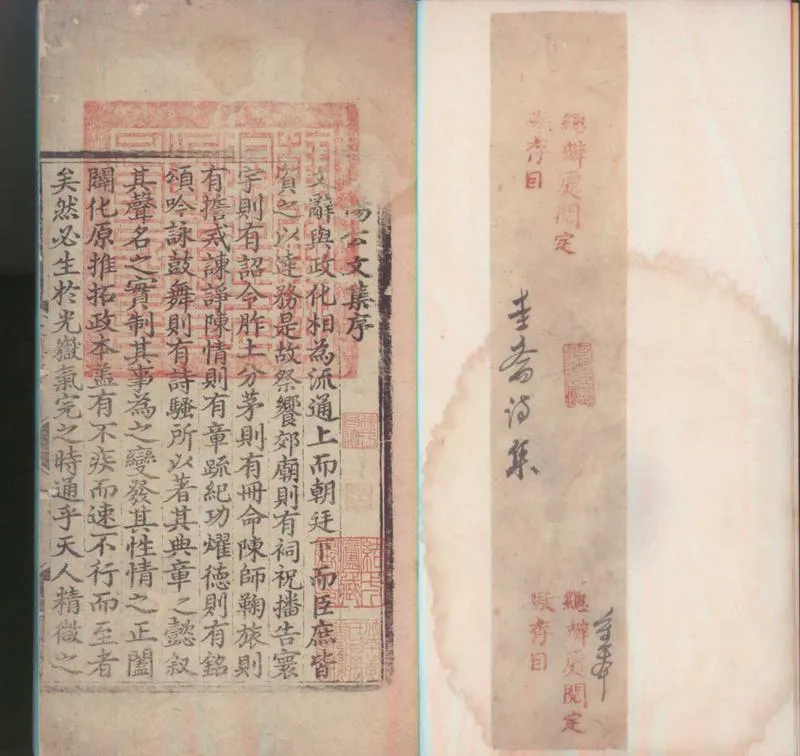 總辦處閱定
擬存目
圭齋詩集
總辦處閱定
擬存目
陽公文集序
文辭與政化相為流通上而朝廷下而臣庶皆
資之以達務是故祭饗郊廟則有祠祝播告寰
宇則有詔令胙土分茅則有冊命陳師鞠旅則
有擔戒諫諍陳情則有章䟽紀功燿德則有銘
頌吟詠鼓舞則有詩騷所以著其典章之懿叙
其聲名之實制其事為之變發其性情之正闔
闢化原推拓政本盖有不疾而速不行而至者
矣然必生於光嶽氣完之時通乎天人精微之